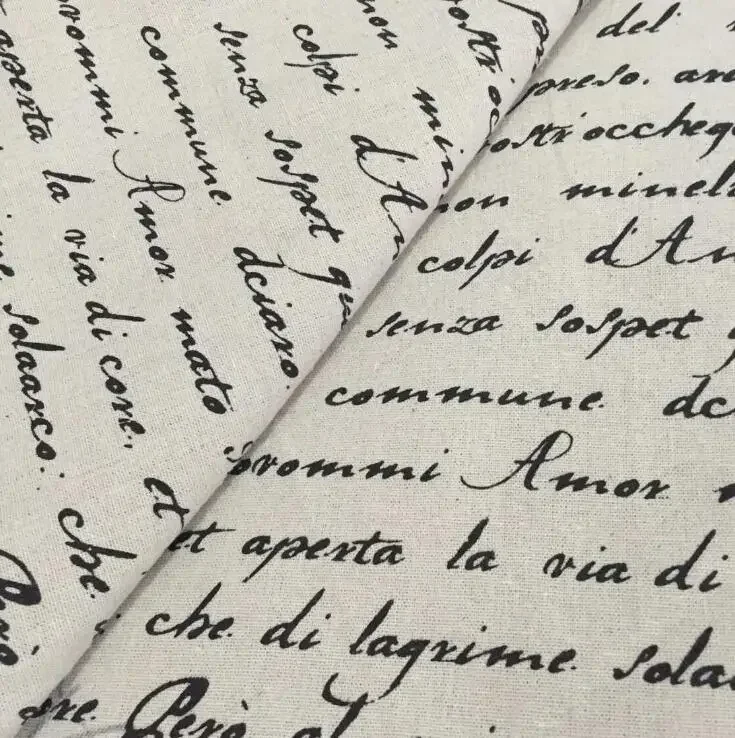 del
preso. are
ostri occheg
non minel
colpi d'Am
senza sospet
commune. dc
trommi Amor
et aperta la via di
che. di lagrime. sola
re. Però al
ostri oc
non min
colpi d'A
senza sospet qu
commune. dciaro.
rommi Amor mato
aperta la via di core., et
me solaarco: che.
Però